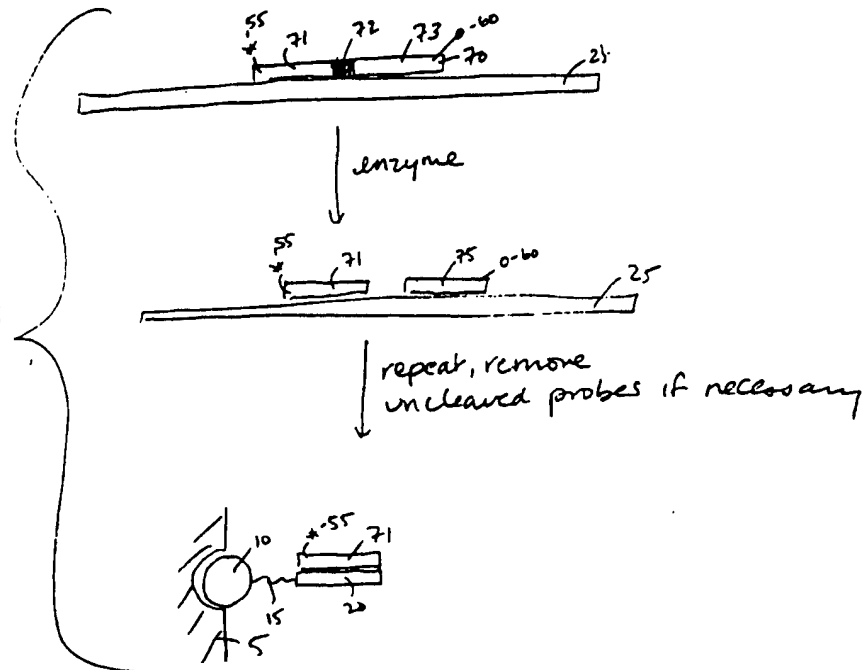 *55 71 72 73 -60 70 25
enzyme
*55 71 75 0-60 25
repeat, remove
uncleaved probes if necessary
*-55 71
10
15 20
5